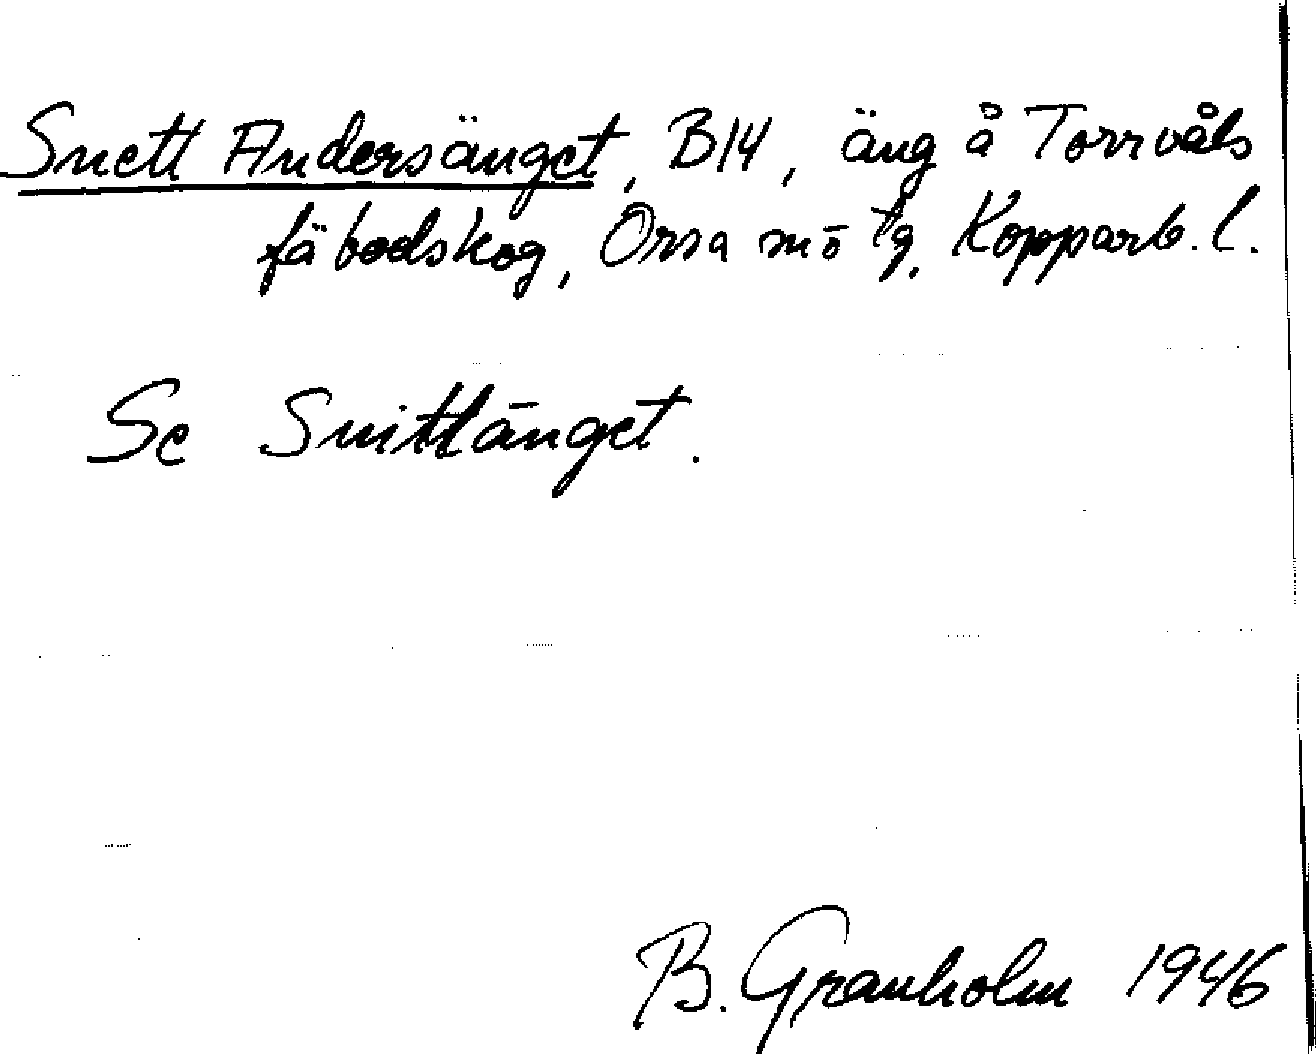 Snett Andersänget, B14, äng å Torrvåls
fäbodskog, Orsa mō tg. Kopparb. l.
Se Snittänget.
B. Granholm 1946